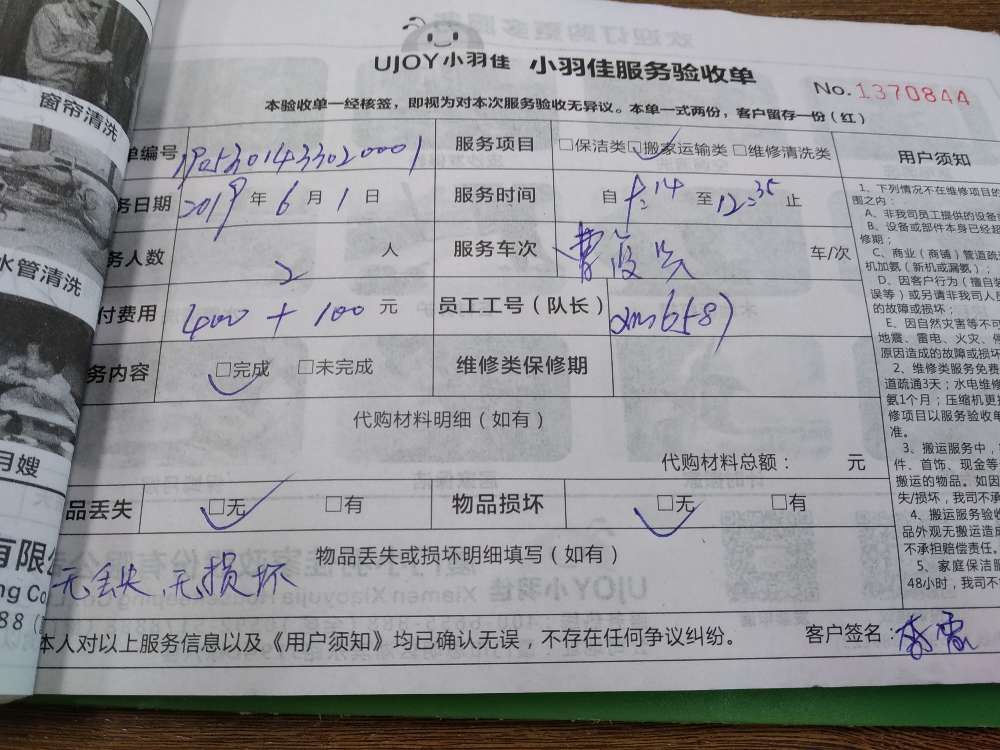 窗帘清洗
水管清洗
月嫂
有限公
ng Co
88
UJOY小羽佳 小羽佳服务验收单
No.1370844
本验收单一经核签，即视为对本次服务验收无异议。本单一式两份，客户留存一份（红）
单编号
服务项目 □保洁类 □搬家运输类 □维修清洗类
务日期 2019年6月1日 服务时间 自 至12:35止
务人数 2人 服务车次 车/次
付费用 400+100元 员工工号（队长）
务内容 □完成 □未完成 维修类保修期
代购材料明细（如有）
代购材料总额： 元
品丢失 □无 □有 物品损坏 □无 □有
物品丢失或损坏明细填写（如有）
无丢失、无损坏
本人对以上服务信息以及《用户须知》均已确认无误，不存在任何争议纠纷。 客户签名：
用户须知
1、下列情况不在维修项目的
围之内：
A、非我司员工提供的设备
B、设备或部件本身已经超
修期；
C、商业（商铺）管道疏
机加氨（新机或漏氨）；
D、因客户行为（擅自装
误等）或另请非我司人员
的故障或损坏；
E、因自然灾害等不可
地震、雷电、火灾、
原因造成的故障或损坏
2、维修类服务免费
道疏通3天；水电维修
氨1个月；压缩机更换
修项目以服务验收单
准。
3、搬运服务中，
件、首饰、现金等
搬运的物品。如因
失/损坏，我司不承
4、搬运服务验收
品外观无搬运造成
不承担赔偿责任。
5、家庭保洁服
48小时，我司不